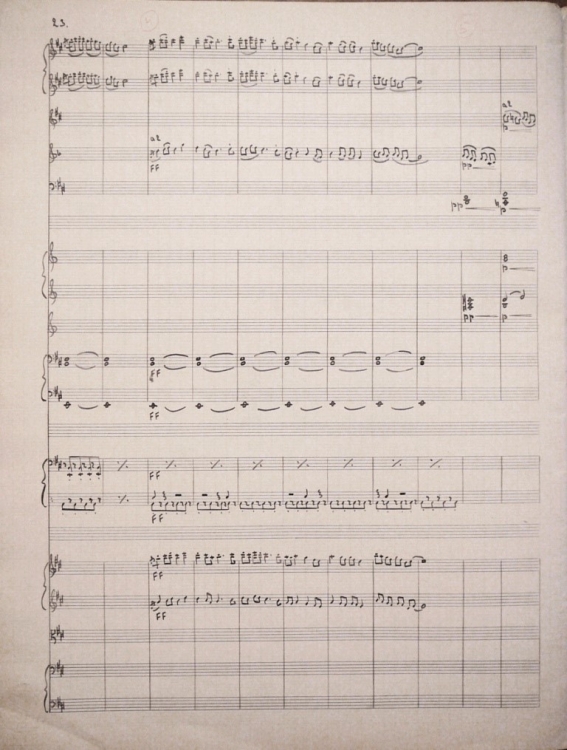 23.
a2
a2
FF
p
pp
pp
p
p
pp
p
FF
FF
FF
FF
FF
FF